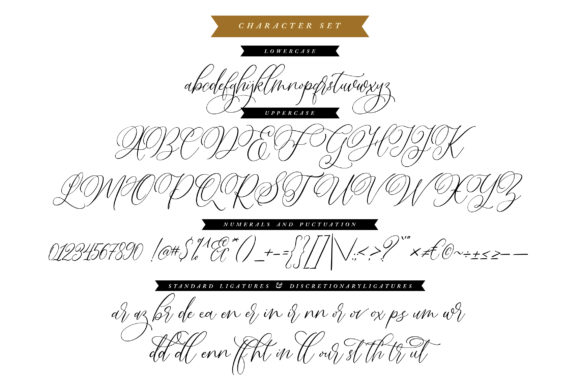 CHARACTER SET
LOWERCASE
abcdefghijklmnopqrstuvwxyz
UPPERCASE
ABCDEFGHIJK
LMNOPQRSTUVWXYZ
NUMERALS AND PUCTUATION
0123456789O !@#$%^&*()_+-={}[]|\/:;<>?"'" ×≠€©~÷±≤≥–—
STANDARD LIGATURES & DISCRETIONARYLIGATURES
ar az br de ea en er in ir nn or ov ex ps um wr
dd dl enn ff ht in ll our st th tr ut